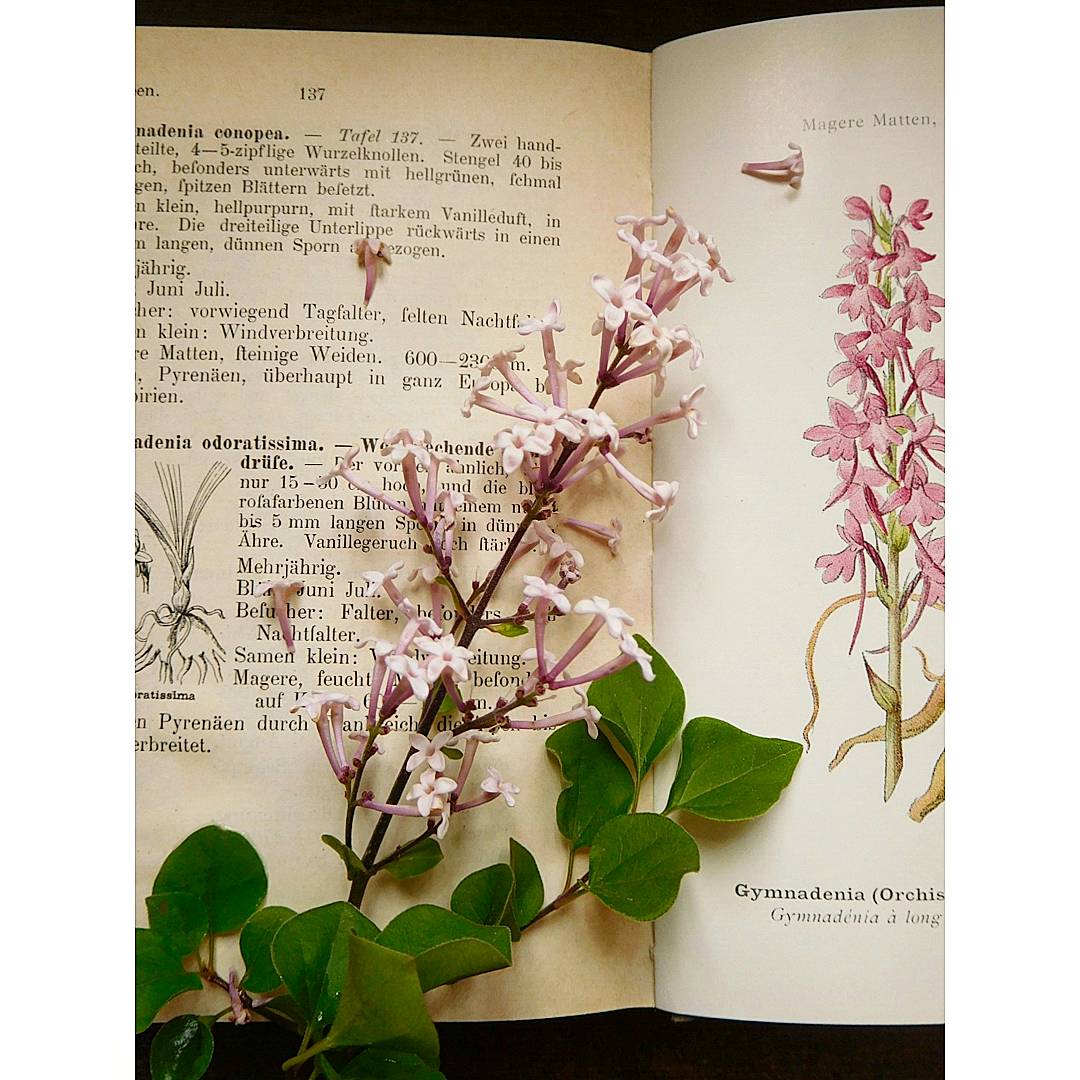 en. 137
nadenia conopea. — Tafel 137. — Zwei hand-
teilte, 4—5-zipflige Wurzelknollen. Stengel 40 bis
ch, beſonders unterwärts mit hellgrünen, ſchmal
gen, ſpitzen Blättern beſetzt.
n klein, hellpurpurn, mit ſtarkem Vanilleduft, in
re. Die dreiteilige Unterlippe rückwärts in einen
m langen, dünnen Sporn ezogen.
jährig.
Juni Juli.
her: vorwiegend Tagfalter, ſelten Nachtf
n klein: Windverbreitung.
re Matten, ſteinige Weiden. 600—230 m.
, Pyrenäen, überhaupt in ganz Europ b
birien.
adenia odoratissima. — Wo echende
drüſe. — Der vor ähnlich,
nur 15—30 c hoch und die bl
roſafarbenen Blüten mit einem n
bis 5 mm langen Spo in dün
Ähre. Vanillegeruch ch ſtär
Mehrjährig.
Juni Juli.
Beſucher: Falter, beſonders
Nachtfalter.
Samen klein: Windv eitung.
Magere, feucht beſond
auf m.
n Pyrenäen durch ankreich bis
erbreitet.
oratissima
Magere Matten,
Gymnadenia (Orchis
Gymnadénia à long